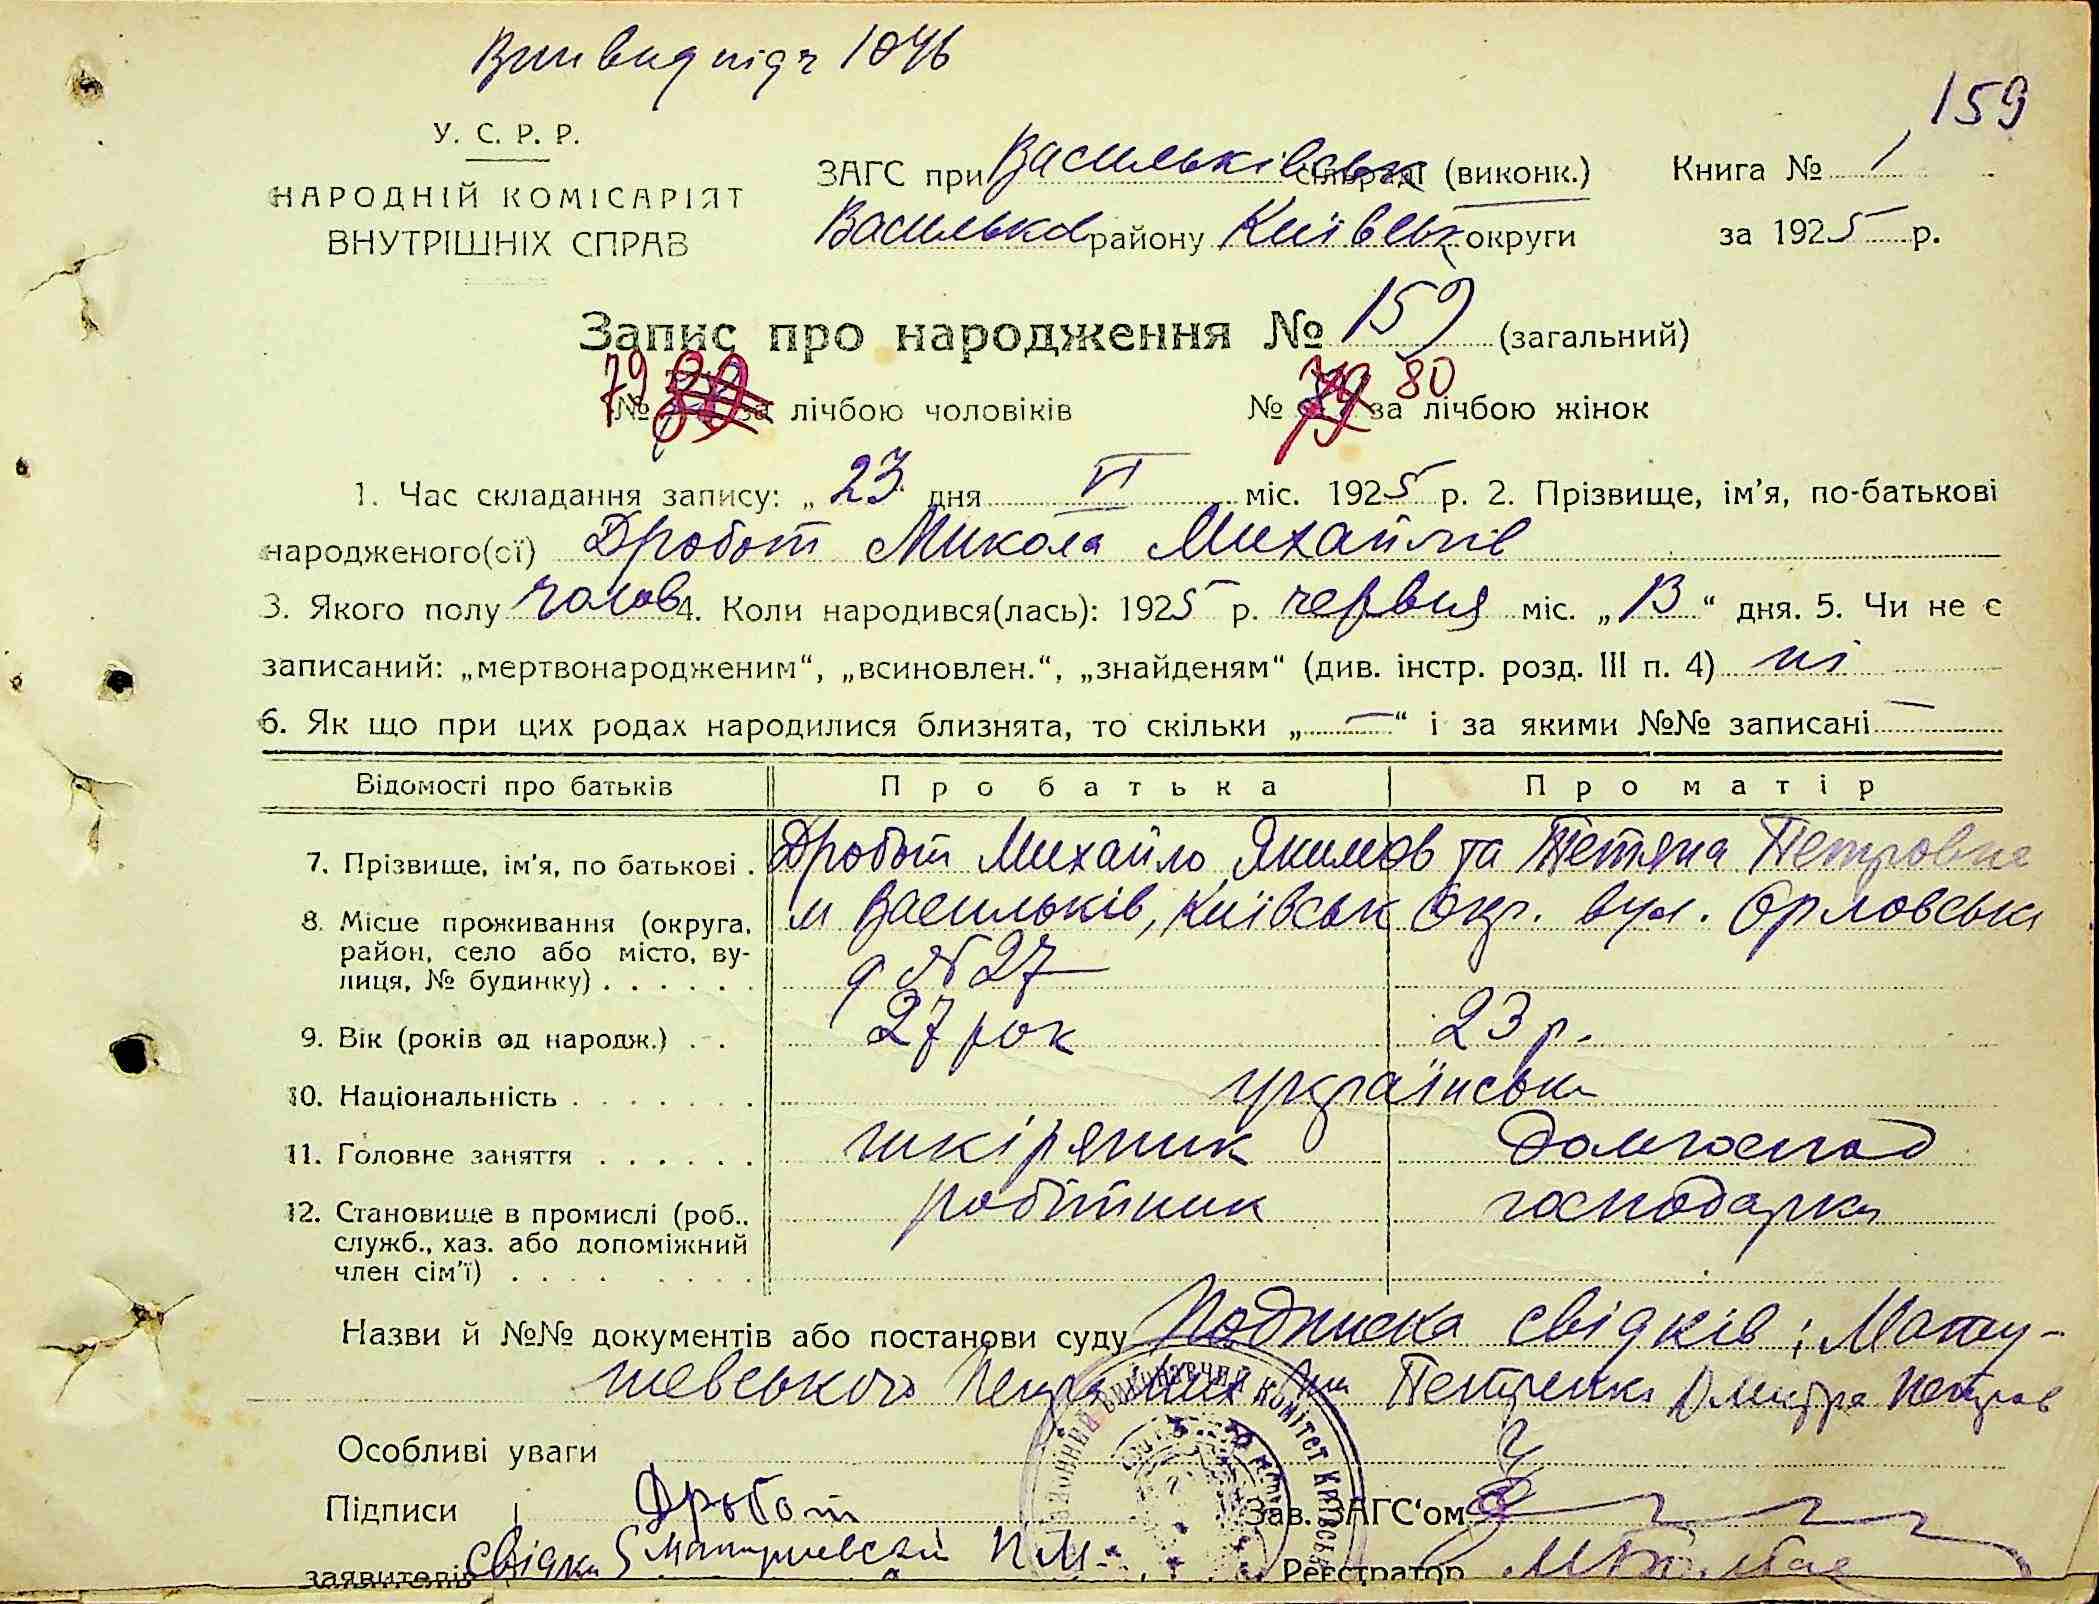 1046
159
У. С. Р. Р.
НАРОДНІЙ КОМІСАРІЯТ
ВНУТРІШНІХ СПРАВ
ЗАГС при Васильківськ сільраді (виконк.) Книга № 1
Васильков району Київськ округи за 1925 р.
Запис про народження № 159 (загальний)
79 № 80 за лічбою чоловіків № 79 80 за лічбою жінок
1. Час складання запису: „23 дня VI міс. 1925 р. 2. Прізвище, ім'я, по-батькові
народженого(сї) Дробот Микола Михайлів
3. Якого полу чолов 4. Коли народився(лась): 1925 р. червня міс. „13“ дня. 5. Чи не є
записаний: „мертвонародженим“, „всиновлен.“, „знайденям“ (див. інстр. розд. III п. 4) ні
6. Як що при цих родах народилися близнята, то скільки „—“ і за якими №№ записані —
Відомості про батьків Про батька Про матір
7. Прізвище, ім'я, по батькові . Дробот Михайло Якимов та Тетяна Петровна
8. Місце проживання (округа, район, село або місто, вулиця, № будинку) . . . . . . м Васильків, Київськ Окр. вул. Орловська
д № 27
9. Вік (років од народж.) . . 27 рок 23 р.
10. Національність . . . . . . . українська
11. Головне заняття . . . . . . шкіряник домгоспод
12. Становище в промислі (роб., служб., хаз. або допоміжний член сім'ї) . . . . . . . . робітник господарка
Назви й №№ документів або постанови суду Подписка свідків: Матушевського Петра Петренка Дмитра Петров
РАЙОННИЙ ВИКОНАВЧИЙ КОМІТЕТ КИЇВСЬК
Особливі уваги
Підписи Дробот Зав. ЗАГС'ом
заявителів свідки П М. Реєстратор